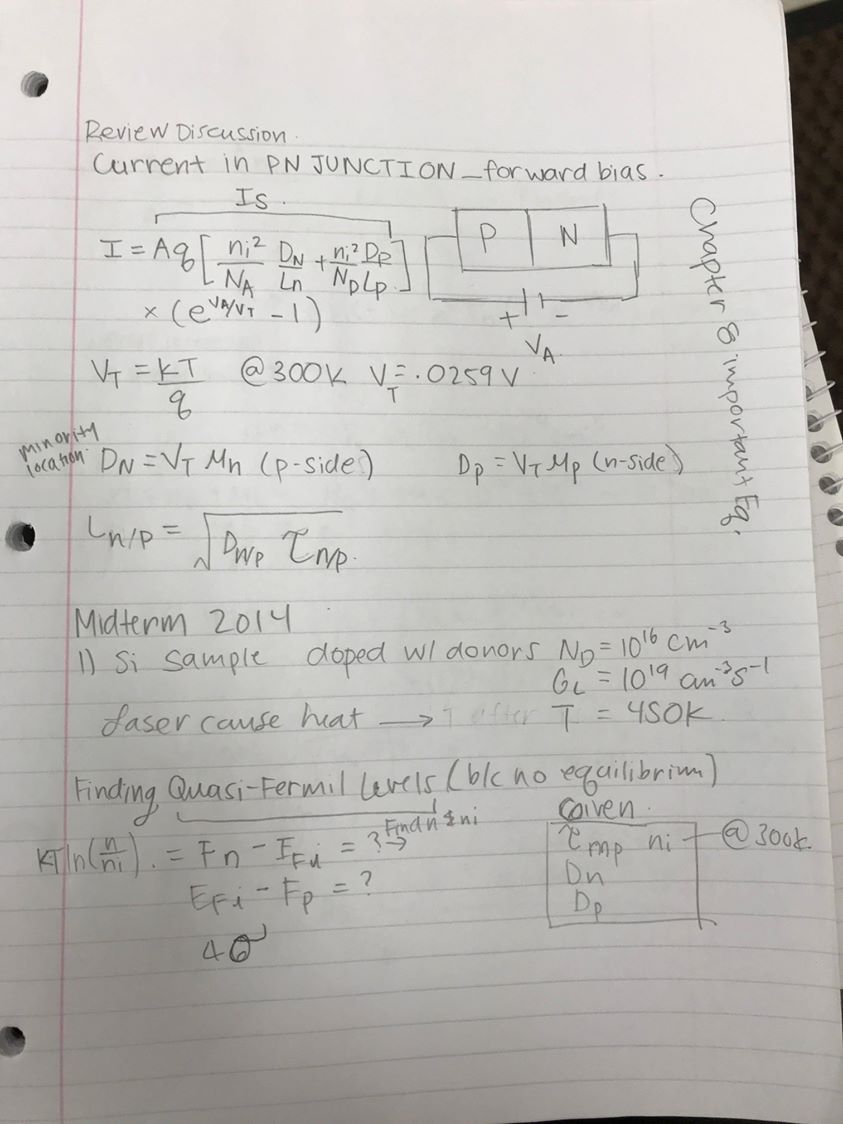 Review Discussion.
Current in PN JUNCTION - forward bias.
Is.
I = Aq [ ni²/NA DN/Ln + ni²/ND Dp/Lp ]
× (e^VA/VT - 1)
P N
+ -
VA
VT = kT/q @ 300K VT = .0259 V
minority
location
DN = VT Mn (p-side) Dp = VT Mp (n-side)
Ln/p = √DN/p τn/p.
Chapter 8 important Eq.
Midterm 2014
1) Si sample doped w/ donors ND = 10^16 cm^-3
GL = 10^19 cm^-3 s^-1
laser cause heat → T after T = 450K
Finding Quasi-Fermil levels (b/c no equilibrium)
Find n & ni
KT ln(n/ni). = Fn - EFi = ? →
EFi - Fp = ?
Given.
τn/p ni @ 300K.
Dn
Dp